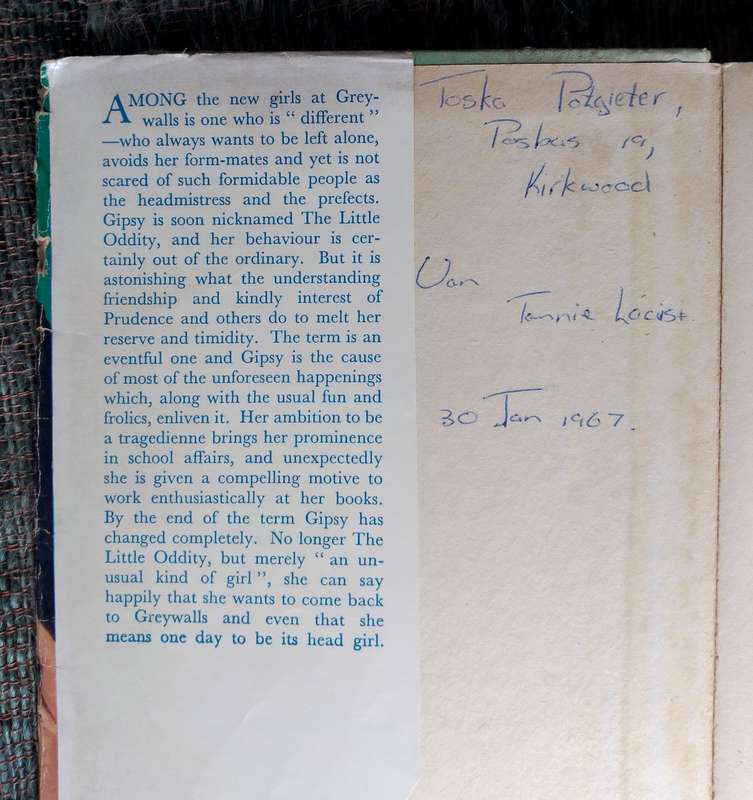 AMONG the new girls at Grey-
walls is one who is “ different ”
—who always wants to be left alone,
avoids her form-mates and yet is not
scared of such formidable people as
the headmistress and the prefects.
Gipsy is soon nicknamed The Little
Oddity, and her behaviour is cer-
tainly out of the ordinary. But it is
astonishing what the understanding
friendship and kindly interest of
Prudence and others do to melt her
reserve and timidity. The term is an
eventful one and Gipsy is the cause
of most of the unforeseen happenings
which, along with the usual fun and
frolics, enliven it. Her ambition to be
a tragedienne brings her prominence
in school affairs, and unexpectedly
she is given a compelling motive to
work enthusiastically at her books.
By the end of the term Gipsy has
changed completely. No longer The
Little Oddity, but merely “ an un-
usual kind of girl ”, she can say
happily that she wants to come back
to Greywalls and even that she
means one day to be its head girl.
Toska Potgieter,
Posbus 19,
Kirkwood
Van
Tannie
30 Jan 1967.